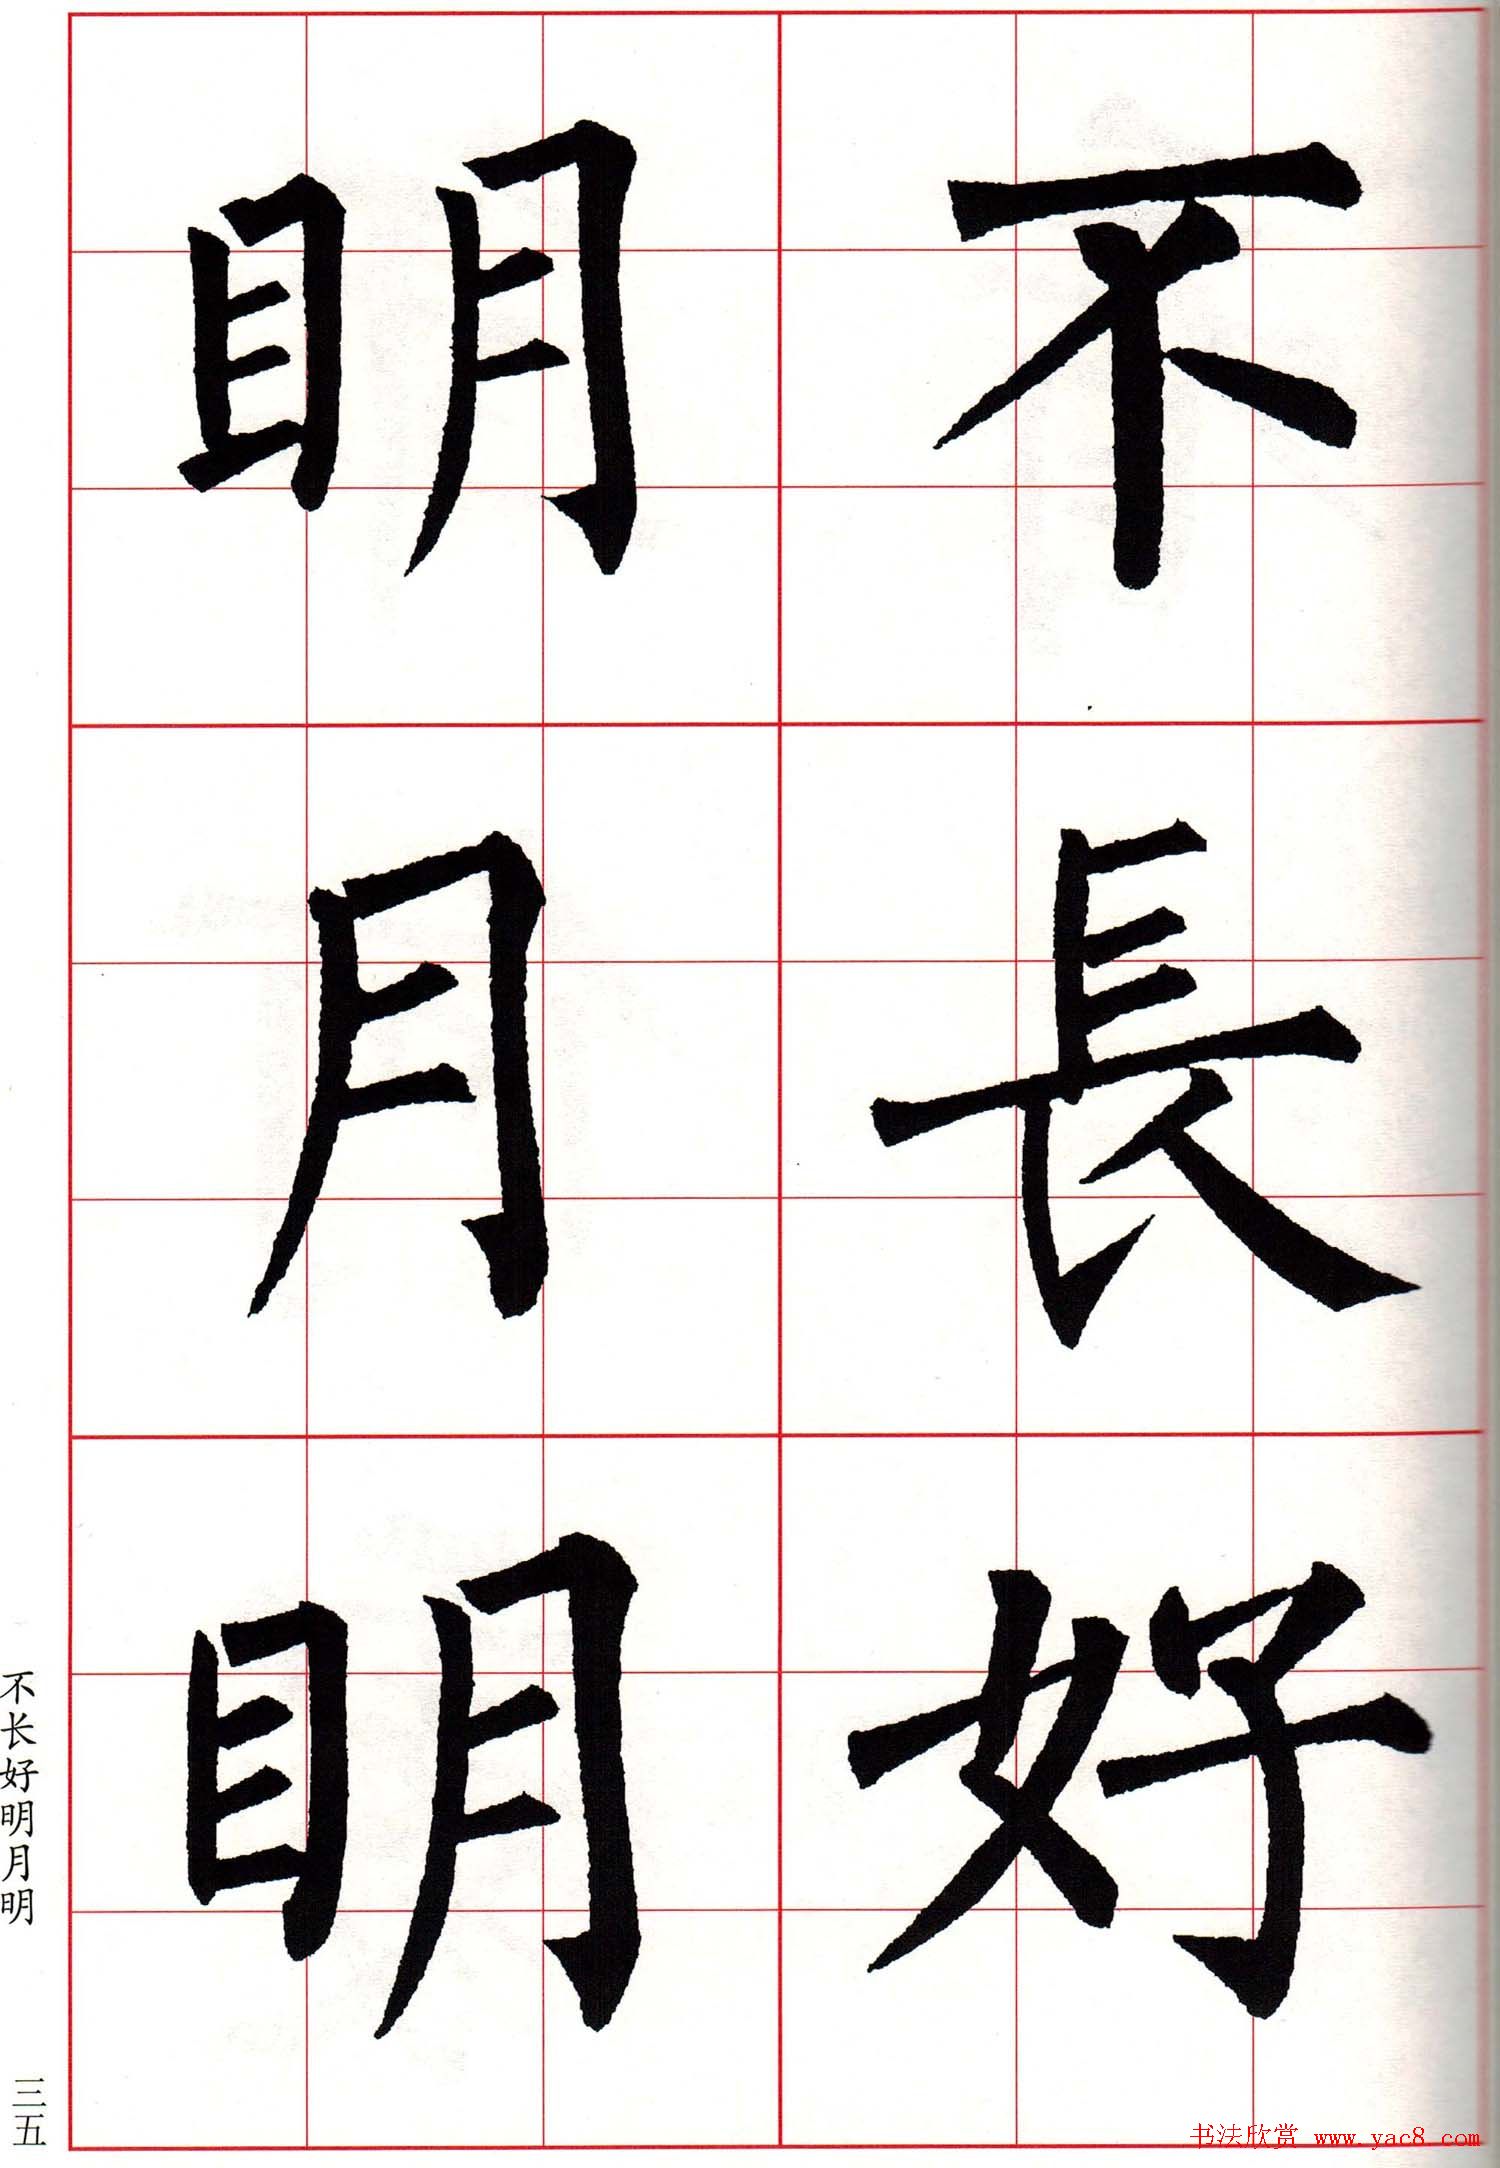 不長好
明月明
不长好明月明
三五
书法欣赏 www.yac8.com